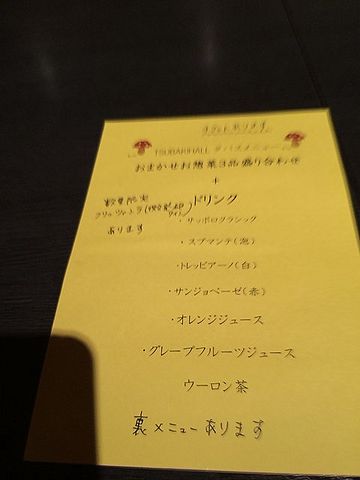 TSUBAKIHALL タパスメニュー
おまかせお惣菜3品盛り合わせ
+
ドリンク
数量限定
あります
・サッポロクラシック
・スプマンテ(泡)
・トレッビアーノ(白)
・サンジョベーゼ(赤)
・オレンジジュース
・グレープフルーツジュース
ウーロン茶
裏メニューあります